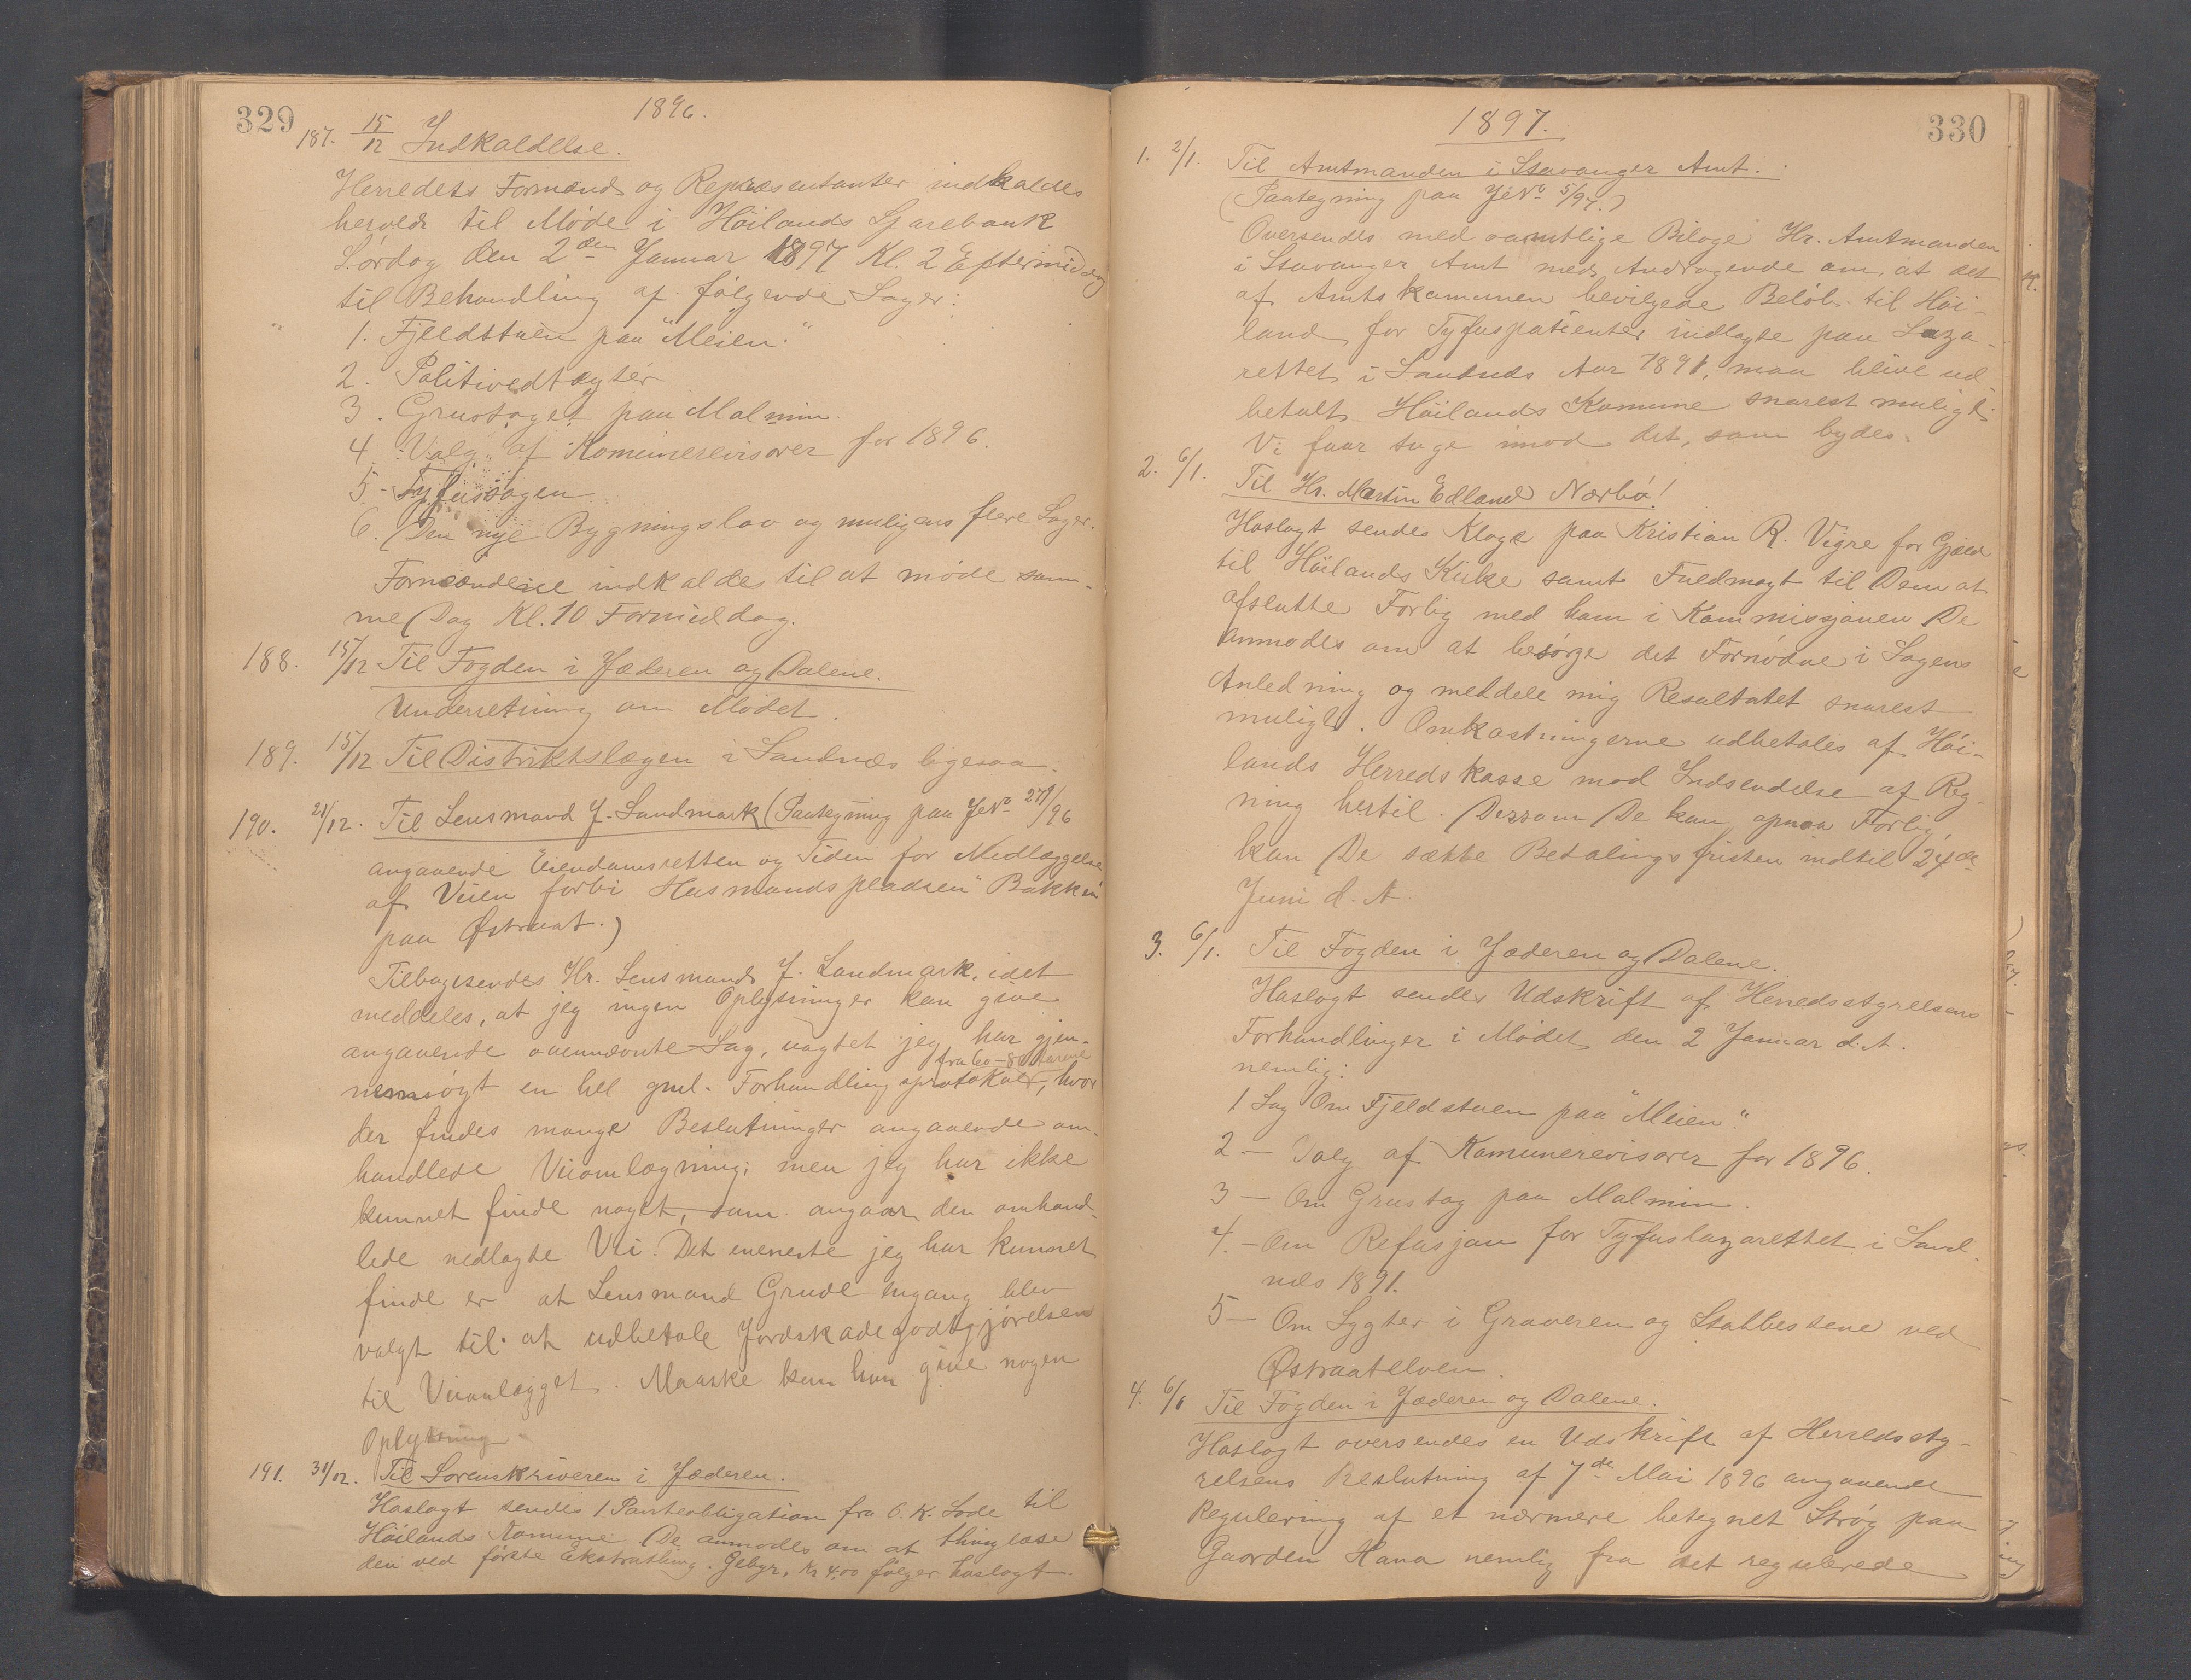 329
1896.
187. 15/12 Indkaldelse.
Herredets Formænd og Repræsentanter indkaldes
herved til Møde i Høilands Sparebank
Lørdag den 2den Januar 1897 Kl. 2 Eftermiddag
til Behandling af følgende Sager:
1. Fjeldstuen paa "Meien."
2. Politivedtægter
3. Grustaget paa Malmin.
4. Valg af Komunerevisorer for 1896.
5. Tyfussagen
6. Den nye Bygningslov og muligens flere Sager.
Formændene indkaldes til at møde sam-
me Dag Kl. 10 Formiddag.
188. 15/12 Til Fogden i Jæderen og Dalene.
Underretning om Mødet.
189. 15/12 Til Distriktslægen i Sandnæs ligesaa.
190. 21/12. Til Lensmand J. Landmark (Paategning paa JNo 271/96
angaaende Eiendomsretten og Tiden for Nedlæggelse
af Veien forbi Husmandspladsen "Bakken"
paa Østraat.)
Tilbagesendes Hr. Lensmand J. Landmark, idet
meddeles, at jeg ingen Oplysninger kan give
angaaende ovennævnte Sag, uagtet jeg har gjen-
nemsøgt en hel gml. Forhandlingsprotokol fra 60-80 aarene, hvor
der findes mange Beslutninger angaaende om-
handlede Veiomlægning; men jeg har ikke
kunnet finde noget, som angaar den omhand-
lede nedlagte Vei. Det eneneste jeg har kunnet
finde er at Lensmand Grude engang blev
valgt til at udbetale Jordskadegodtgjørelsen
til Veianlægget. Maaske kan han give nogen
Oplysning
191. 31/12. Til Sorenskriveren i Jæderen.
Hoslagt sendes 1 Panteobligation fra O. K. Lode til
Høilands Komune. De anmodes om at thinglæse
den ved første Ekstrathing. Gebyr, Kr 4.00 følger hoslagt.
330
1897.
1. 2/1. Til Amtmanden i Stavanger Amt.
(Paategning paa JNo 5/97.)
Oversendes med samtlige Bilage Hr. Amtmanden
i Stavanger Amt med Andragende om, at det
af Amtskomunen bevilgede Beløb til Høi-
land for Tyfuspatienter indlagte paa Laza-
rettet i Sandnes Aar 1891, maa blive ud-
betalt Høilands Komune snarest muligt.
Vi faar tage imod det, som bydes.
2. 6/1. Til Hr. Martin Edland Nærbø!
Hoslagt sendes Klage paa Kristian R. Vigre for Gjæld
til Høilands Kirke samt Fuldmagt til Dem at
afslutte Forlig med ham i Kommissjonen De
anmodes om at besørge det Fornødne i Sagens
Anledning og meddele mig Resultatet snarest
muligt. Omkostningerne udbetales af Høi-
lands Herredskasse mod Indsendelse af Reg-
ning hertil. Dersom De kan opnaa Forlig,
kan De sætte Betalingsfristen indtil 24de
Juni d. A.
3. 6/1. Til Fogden i Jæderen og Dalene.
Hoslagt sendes Udskrift af Herredsstyrelsens
Forhandlinger i Mødet den 2 Januar d. A.
nemlig:
1 Sag Om Fjeldstuen paa "Meien".
2 — Valg af Komunerevisorer for 1896.
3 — Om Grustag paa Malmin.
4. — Om Refusjon for Tyfuslazarettet i Sand-
næs 1891.
5 — Om Lygter i Graveren og Stabbestene ved
Østraatelven.
4. 6/1 Til Fogden i Jæderen og Dalene.
Hoslagt oversendes en Udskrift af Herredssty-
relsens Beslutning af 7de Mai 1896 angaaende
Regulering af et nærmere betegnet Strøg paa
Gaarden Hana nemlig fra det regulerede